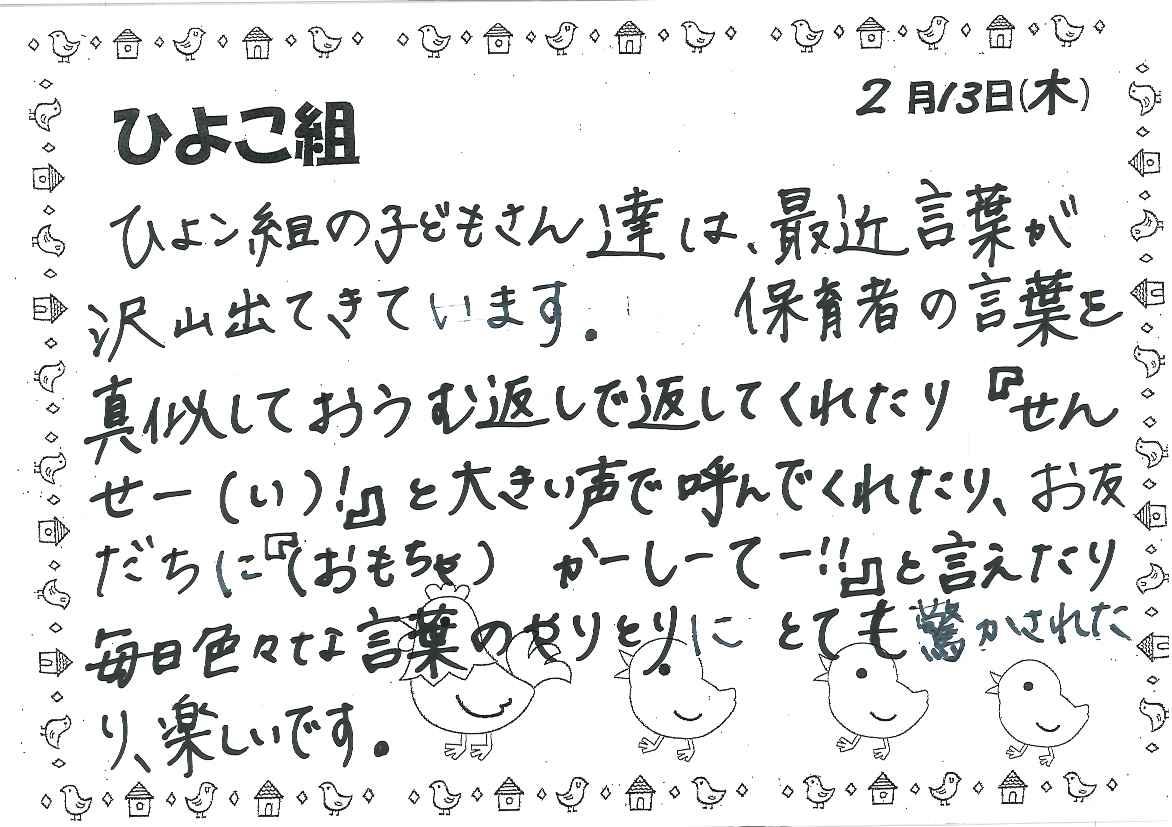 2月13日(木)
ひよこ組
ひよこ組の子どもさん達は、最近言葉が
沢山出てきています。 保育者の言葉を
真似しておうむ返しで返してくれたり『せん
せー(い)!』と大きい声で呼んでくれたり、お友
だちに『(おもちゃ) かーしーてー!!』と言えたり
毎日色々な言葉のやりとりに とても驚かされた
り、楽しいです。